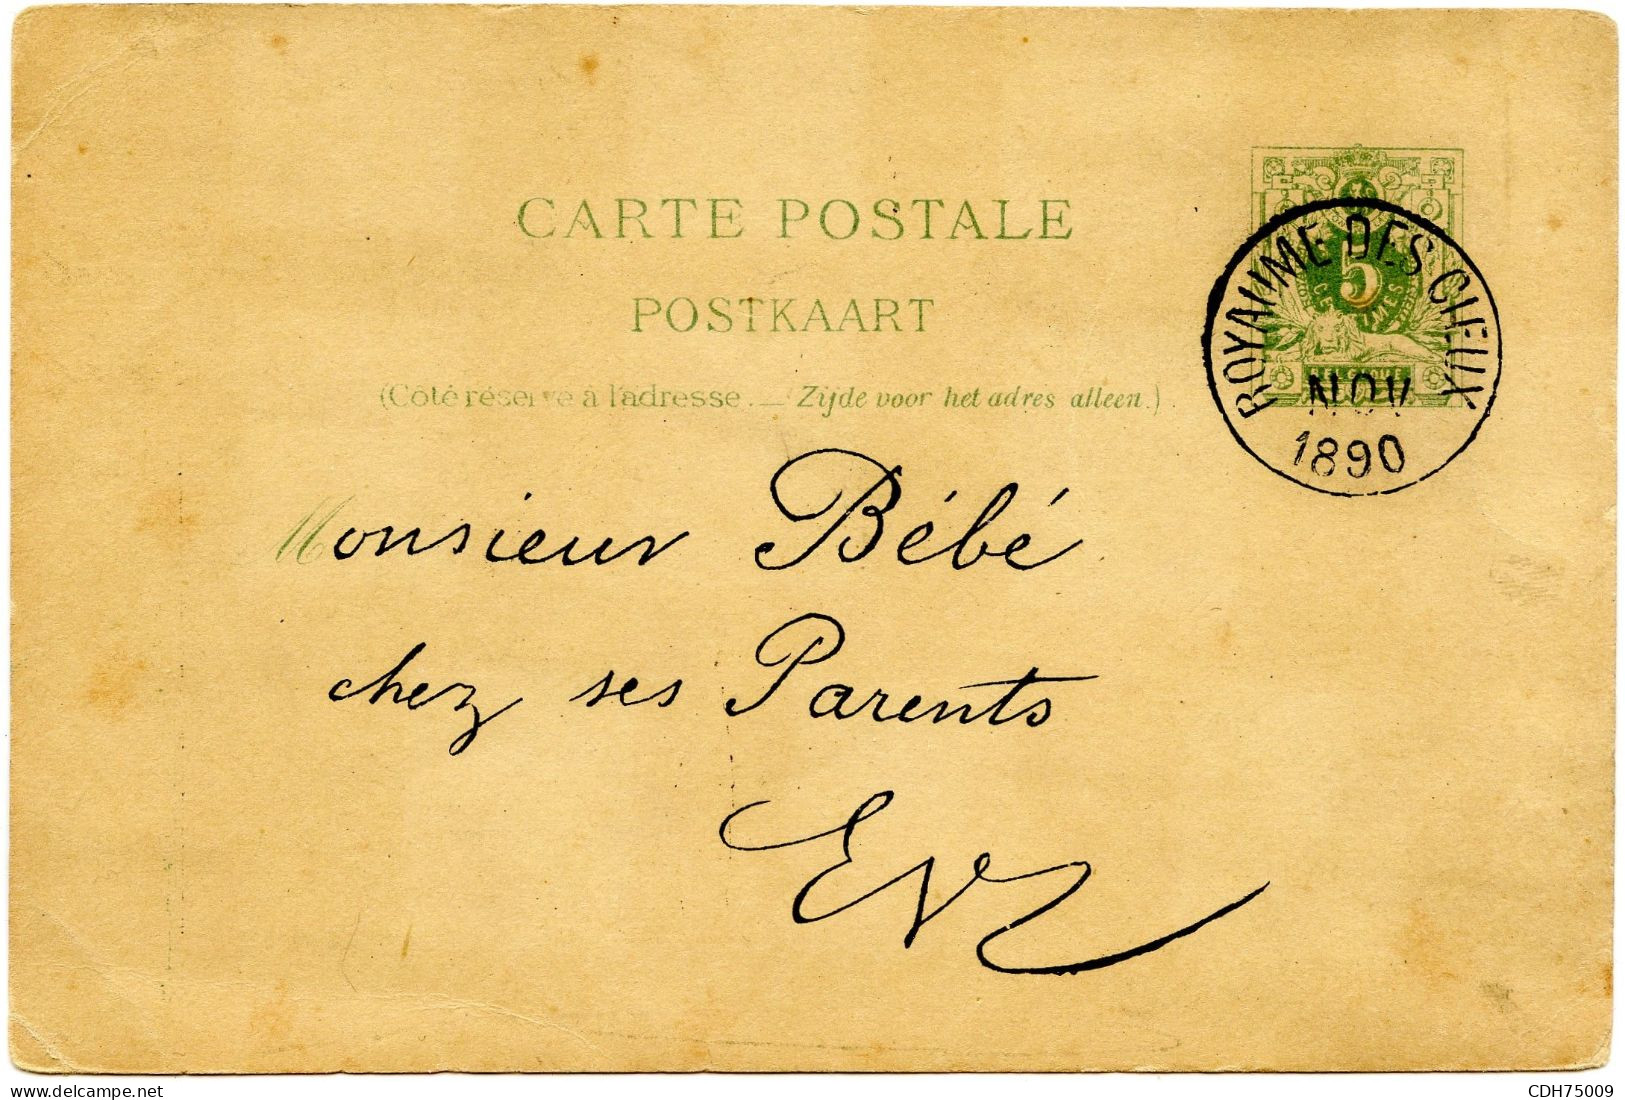 CARTE POSTALE
POSTKAART
(Côté réservé à l'adresse. — Zijde voor het adres alleen.)
5
ROYAUME DES CIEUX
NOV
1890
Monsieur Bébé
chez ses Parents
EV
CDH75009